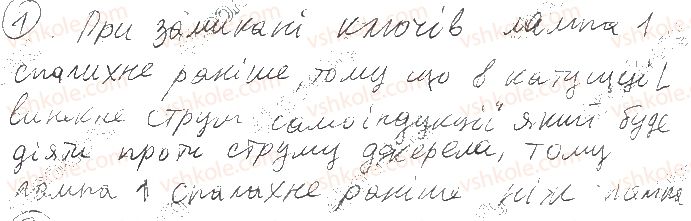 1. При замикані ключів лампа 1
спалихне раніше, тому що в катушції L
виникне струм самоіндукції який буде
діяти проти струму джерела, тому
лампа 1 спалахне раніше ніж лампа